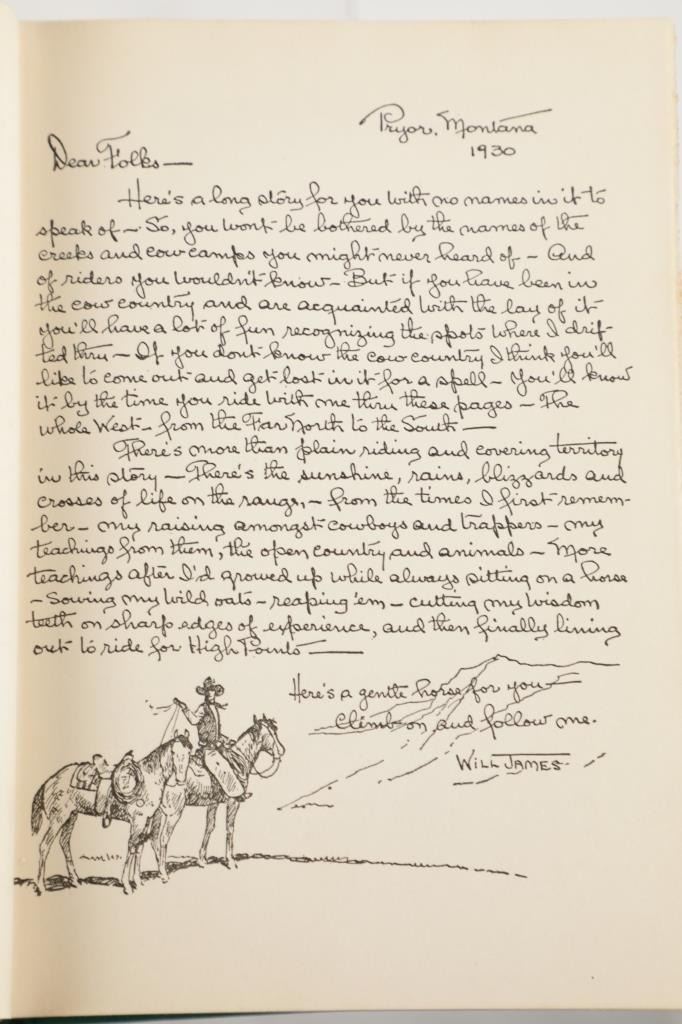 Pryor, Montana
1930
Dear Folks —
Here's a long story for you with no names in it to
speak of — So, you wont be bothered by the names of the
creeks and cow camps you might never heard of — And
of riders you wouldn't know — But if you have been in
the cow country and are acquainted with the lay of it
you'll have a lot of fun recognizing the spots where I drif-
ted thru — If you dont know the cow country I think you'll
like to come out and get lost in it for a spell — You'll know
it by the time you ride with me thru these pages — The
whole West — from the Far North to the South —
There's more than plain riding and covering territory
in this story — There's the sunshine, rains, blizzards and
crosses of life on the range, — from the times I first remem-
ber — my raising amongst cowboys and trappers — my
teachings from them, the open country and animals — More
teachings after I'd growed up while always sitting on a horse
— Sowing my wild oats — reaping 'em — cutting my wisdom
teeth on sharp edges of experience, and then finally lining
out to ride for High Points —
Here's a gentle horse for you —
Climb on and follow me.
WILL JAMES —